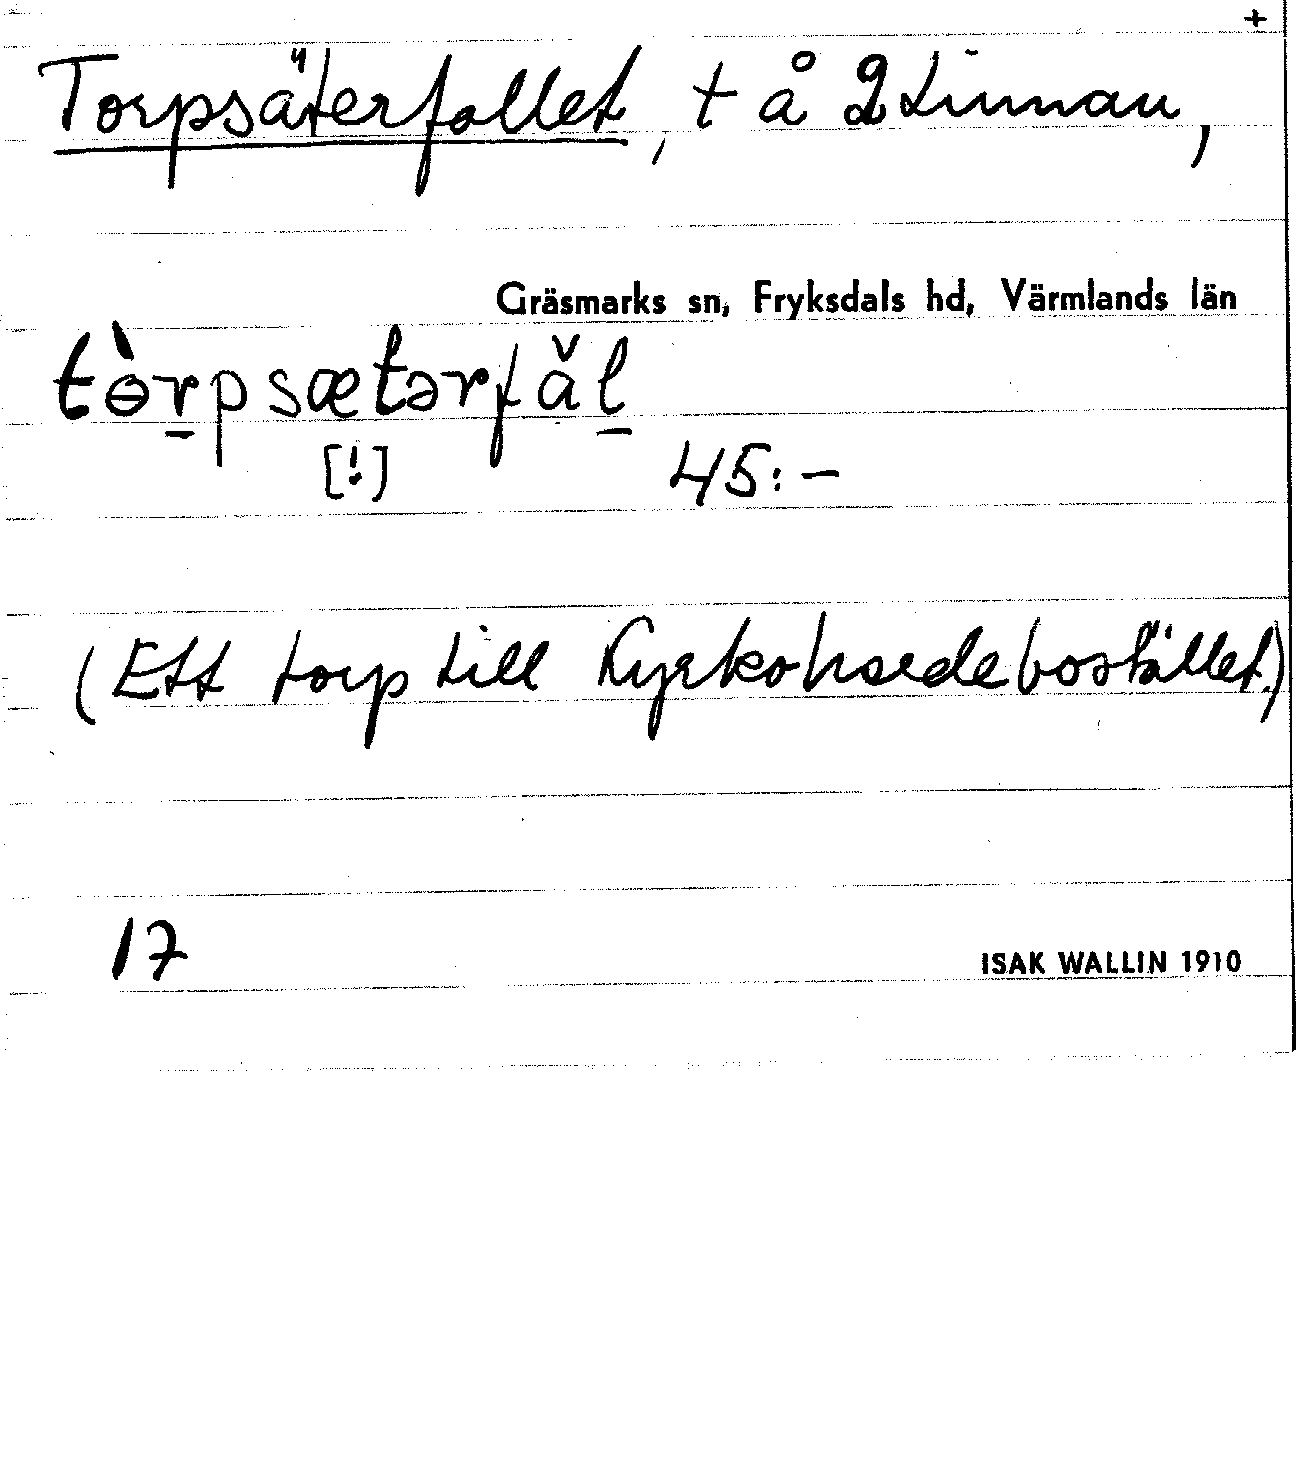 +
Torpsäterfallet, t å 2 Timnan,
Gräsmarks sn, Fryksdals hd, Värmlands län
tɵ̀rpsætərfăl
[!] 45:-
(Ett torp till Kyrkohedebostället.)
17 ISAK WALLIN 1910